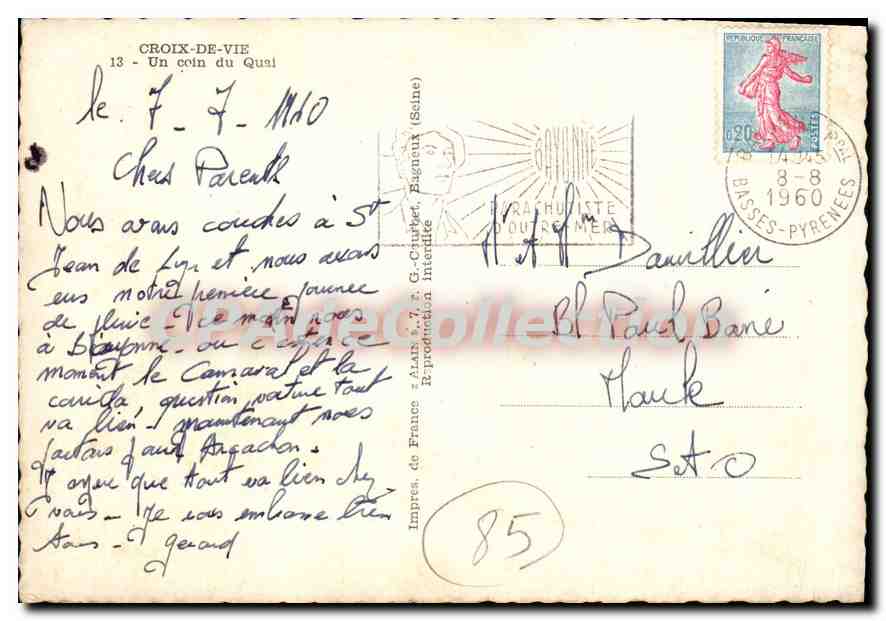 CROIX-DE-VIE
13 - Un coin du Quai
le 7 - 7 - 1960
Chers Parents
Nous avons couchés à St
Jean de Luz et nous avons
eus notre première journée
de pluie - Ce matin nous
à Bayonne - ou c'est en ce
moment le Carnaval et la
corrida, question voiture tout
va bien - maintenant nous
partons pour Arcachon -
J'espère que tout va bien chez
vous - Je vous embrasse bien
tous - Gerard
Impres. de France "ALAIN", 7, r. G.-Courbet, Bagneux (Seine)
Reproduction interdite
REPUBLIQUE FRANÇAISE
0,20
POSTES
14H45
8-8
1960
BASSES-PYRENEES
BAYONNE
PARACHUTISTE
D'OUTRE-MER
Mr et Mme Dauvillier
Bl Paul Baré
Maule
S et O
85
CPArteCollection